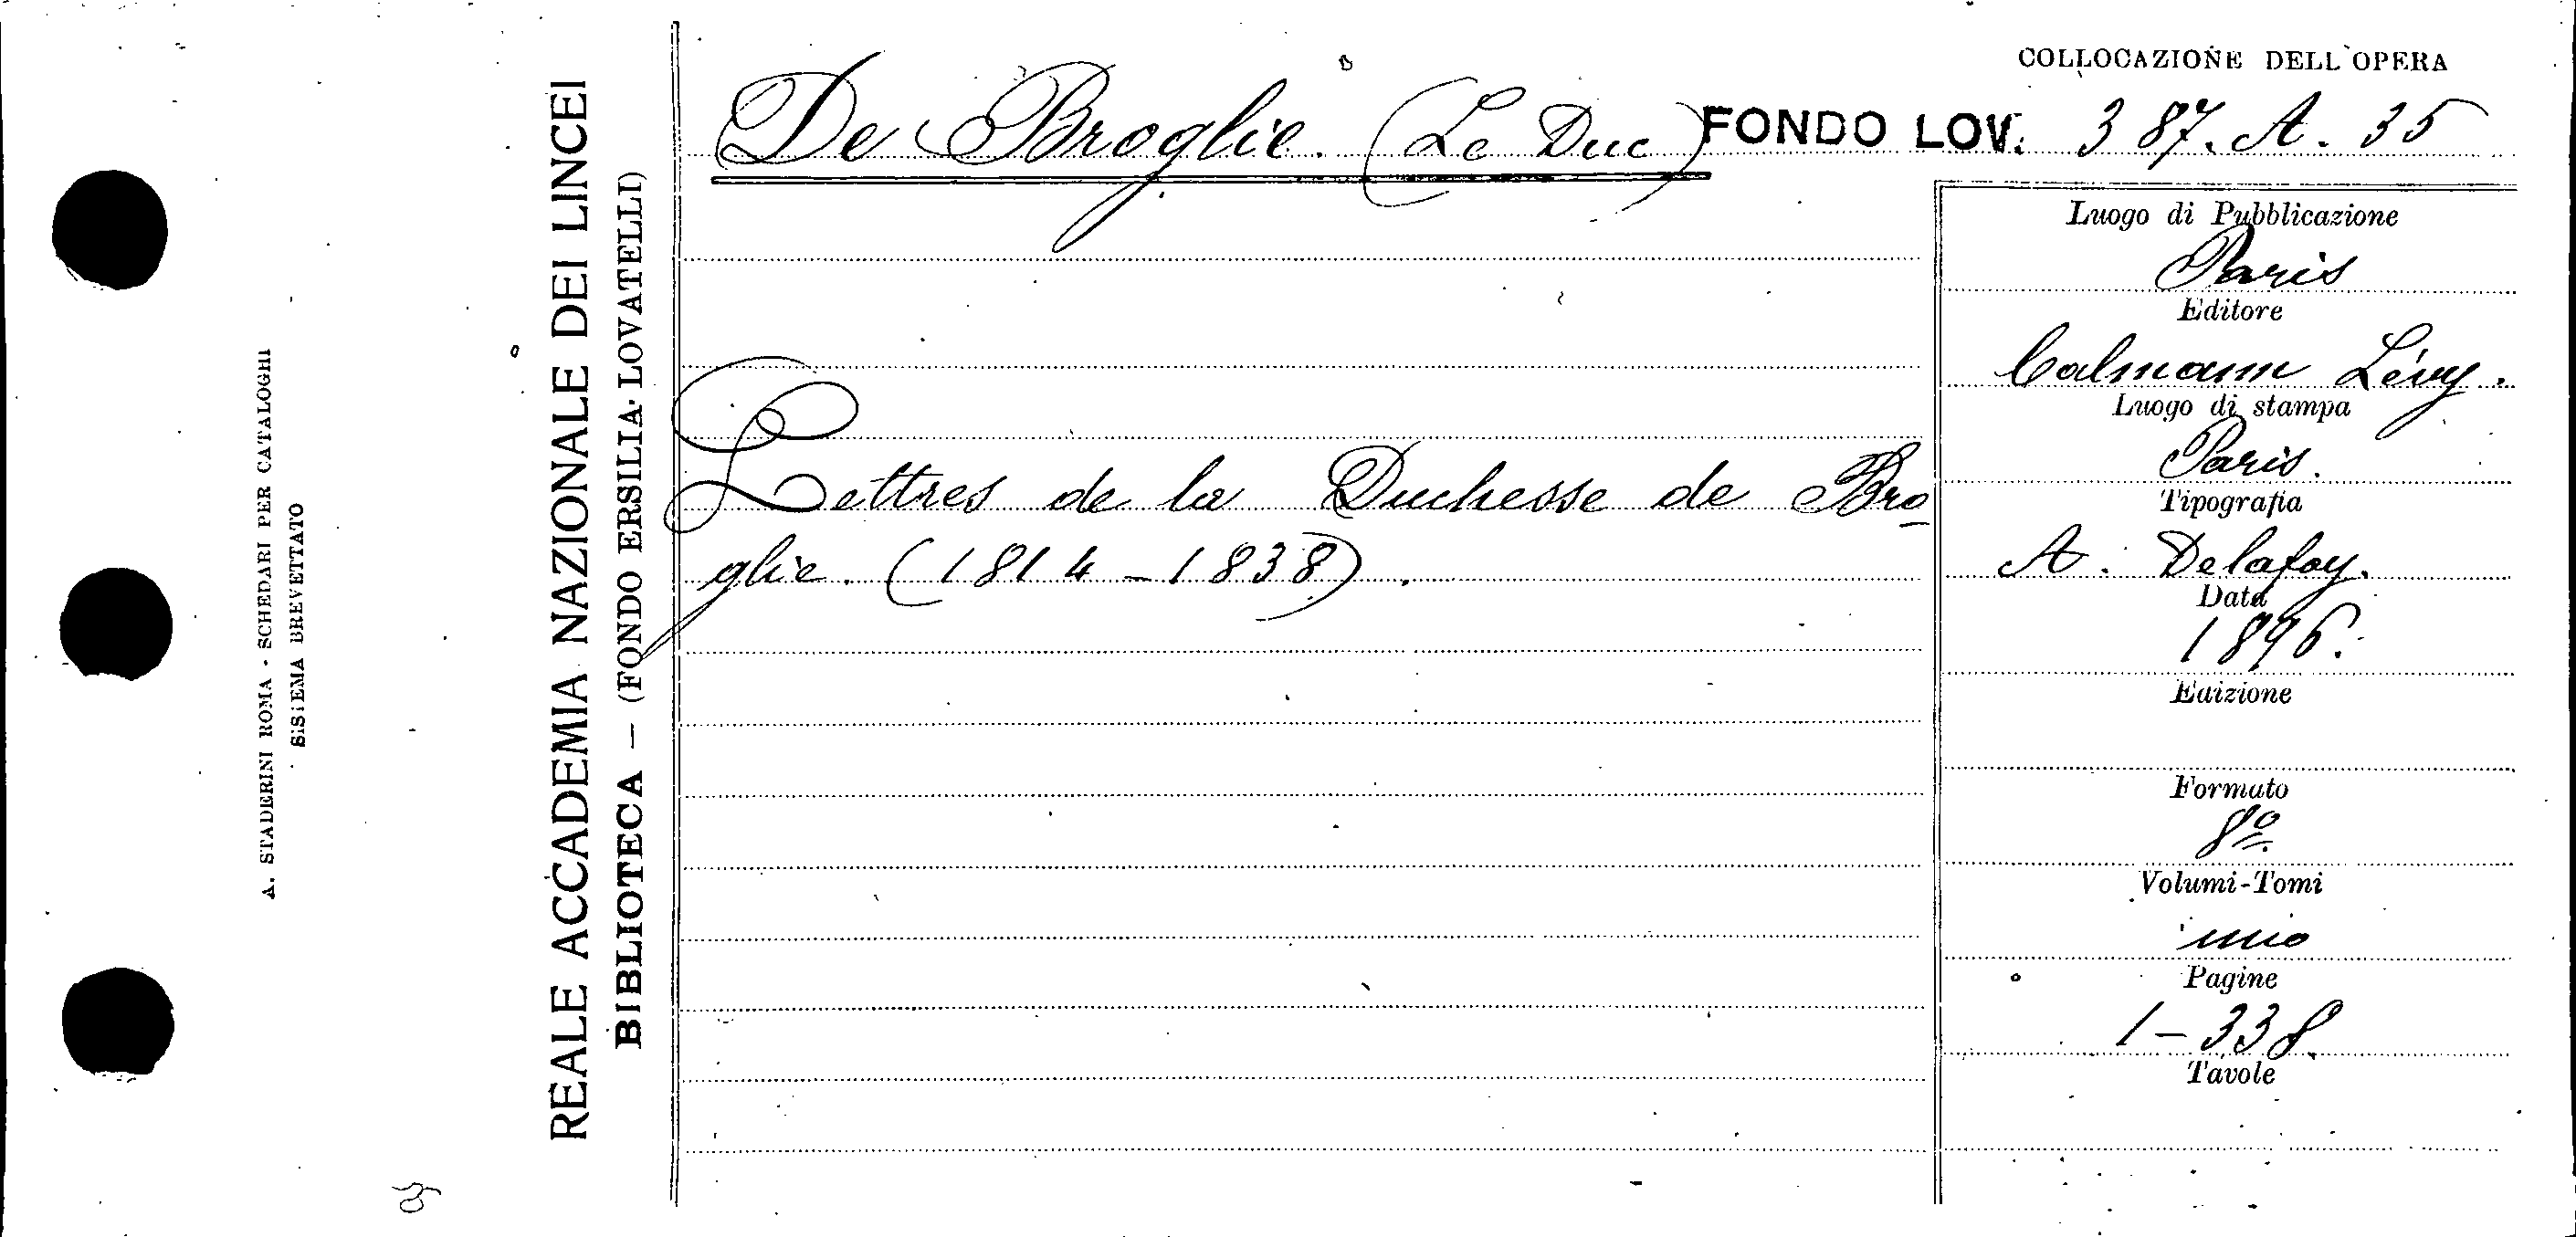 A. STADERINI ROMA - SCHEDARI PER CATALOGHI
SISTEMA BREVETTATO
REALE ACCADEMIA NAZIONALE DEI LINCEI
BIBLIOTECA — (FONDO ERSILIA-LOVATELLI)
De Broglie. (Le Duc)
Lettres de la Duchesse de Bro-
glie. (1814-1838).
COLLOCAZIONE DELL'OPERA
FONDO LOV. 387. A. 35
Luogo di Pubblicazione
Paris
Editore
Calmann Lévy.
Luogo di stampa
Paris.
Tipografia
A. Delafoy.
Data
1896.
Edizione
Formato
8º
Volumi-Tomi
uno
Pagine
1-338.
Tavole